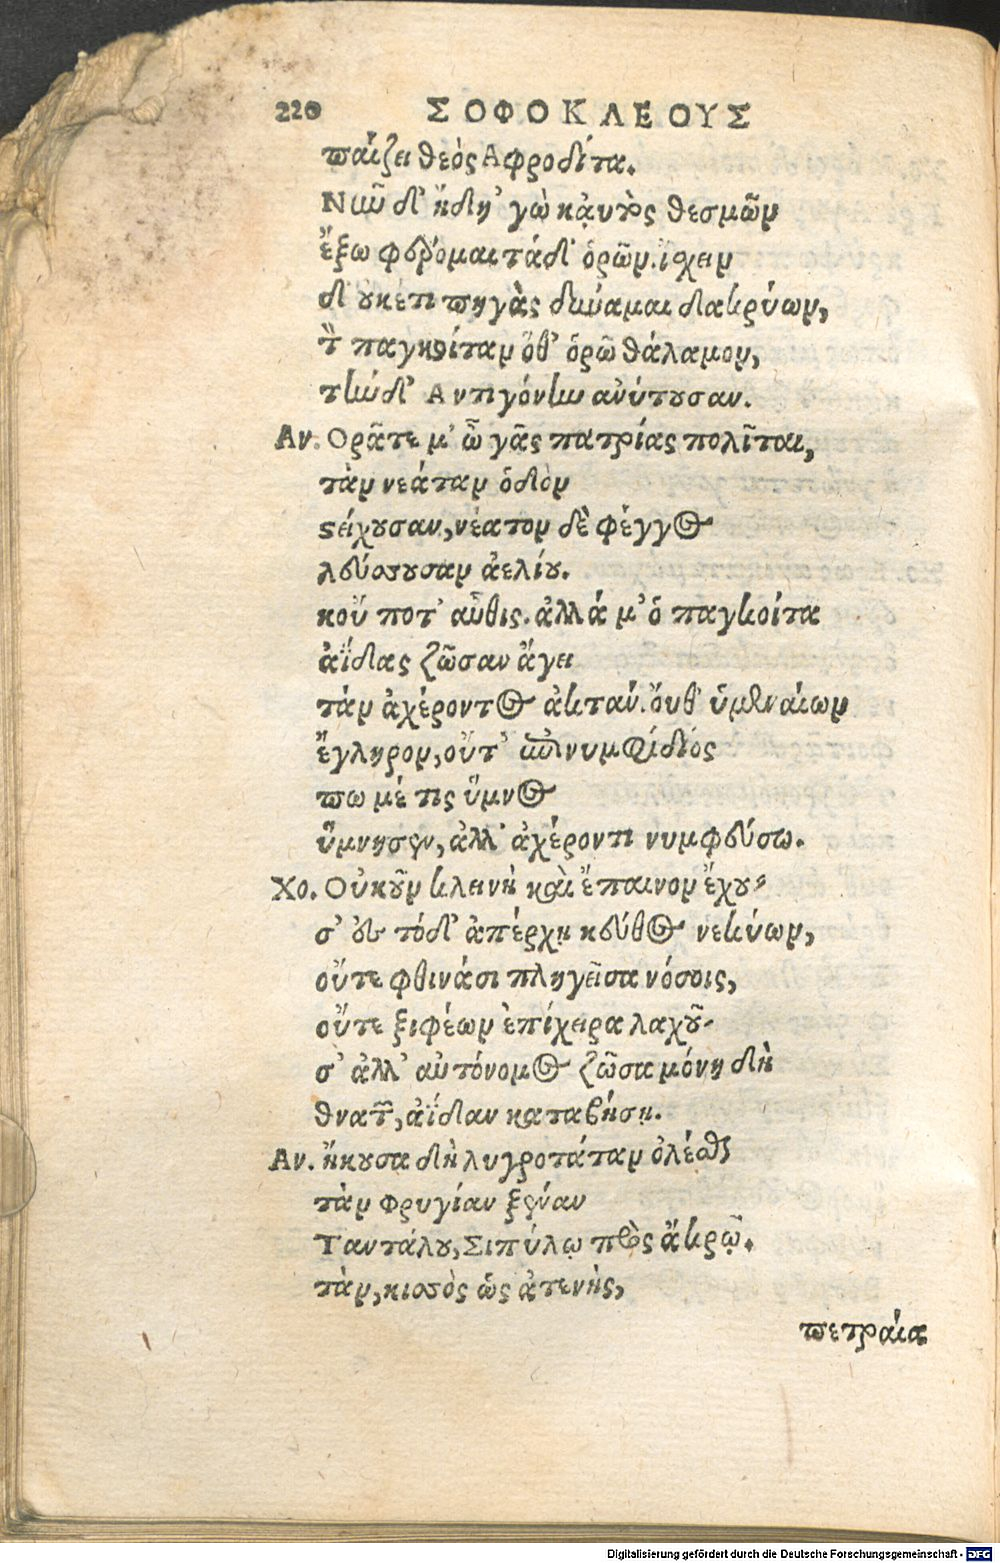 220 ΣΟΦΟΚΛΕΟΥΣ
παίζει θεὸς Αφροδίτα.
Νῦν δ' ἤδη' γὼ καὐτὸς θεσμῶν
ἔξω φέρομαι τάδ' ὁρῶν. ἴσχειν
δ' ουκέτι πηγὰς δύναμαι δακρύων,
τὸν παγκοίταν ὅθ' ὁρῶ θάλαμον,
τὴν δ' Αντιγόνην ανύτουσαν.
Αν. Ορᾶτε μ' ὦ γᾶς πατρίας πολῖται,
τὰν νεάταν ὁδὸν
στείχουσαν, νέατον δὲ φέγγος
λεύσσουσαν ἀελίου.
κοὔ ποτ' αὖθις. ἀλλά μ' ὁ παγκοίτα
ἀΐδας ζῶσαν ἄγει
τὰν ἀχέροντος ἀκτάν. ὄυθ' ὑμεναίων
ἔγκληρον, οὔτ' ἐπινυμφίδιός
πω μέ τις ὕμνος
ὕμνησεν, ἀλλ' ἀχέροντι νυμφεύσω.
Χο. Οὐκοῦν κλεινὴ καὶ ἔπαινον ἔχου-
σ' ἐς τόδ' ἀπέρχῃ κεῦθος νεκύων,
οὔτε φθινάσι πληγεῖσα νόσοις,
οὔτε ξιφέων ἐπίχειρα λαχοῦ-
σ' ἀλλ' αὐτόνομος ζῶσα μόνη δὴ
θνατῶν, ἀΐδαν καταβήσῃ.
Αν. ἤκουσα δὴ λυγροτάταν ὀλέσθαι
τὰν Φρυγίαν ξέναν
Ταντάλου, Σιπύλῳ πρὸς ἄκρῳ.
τὰν, κισσὸς ὡς ἀτενὴς,
πετραία
Digitalisierung gefördert durch die Deutsche Forschungsgemeinschaft - DFG